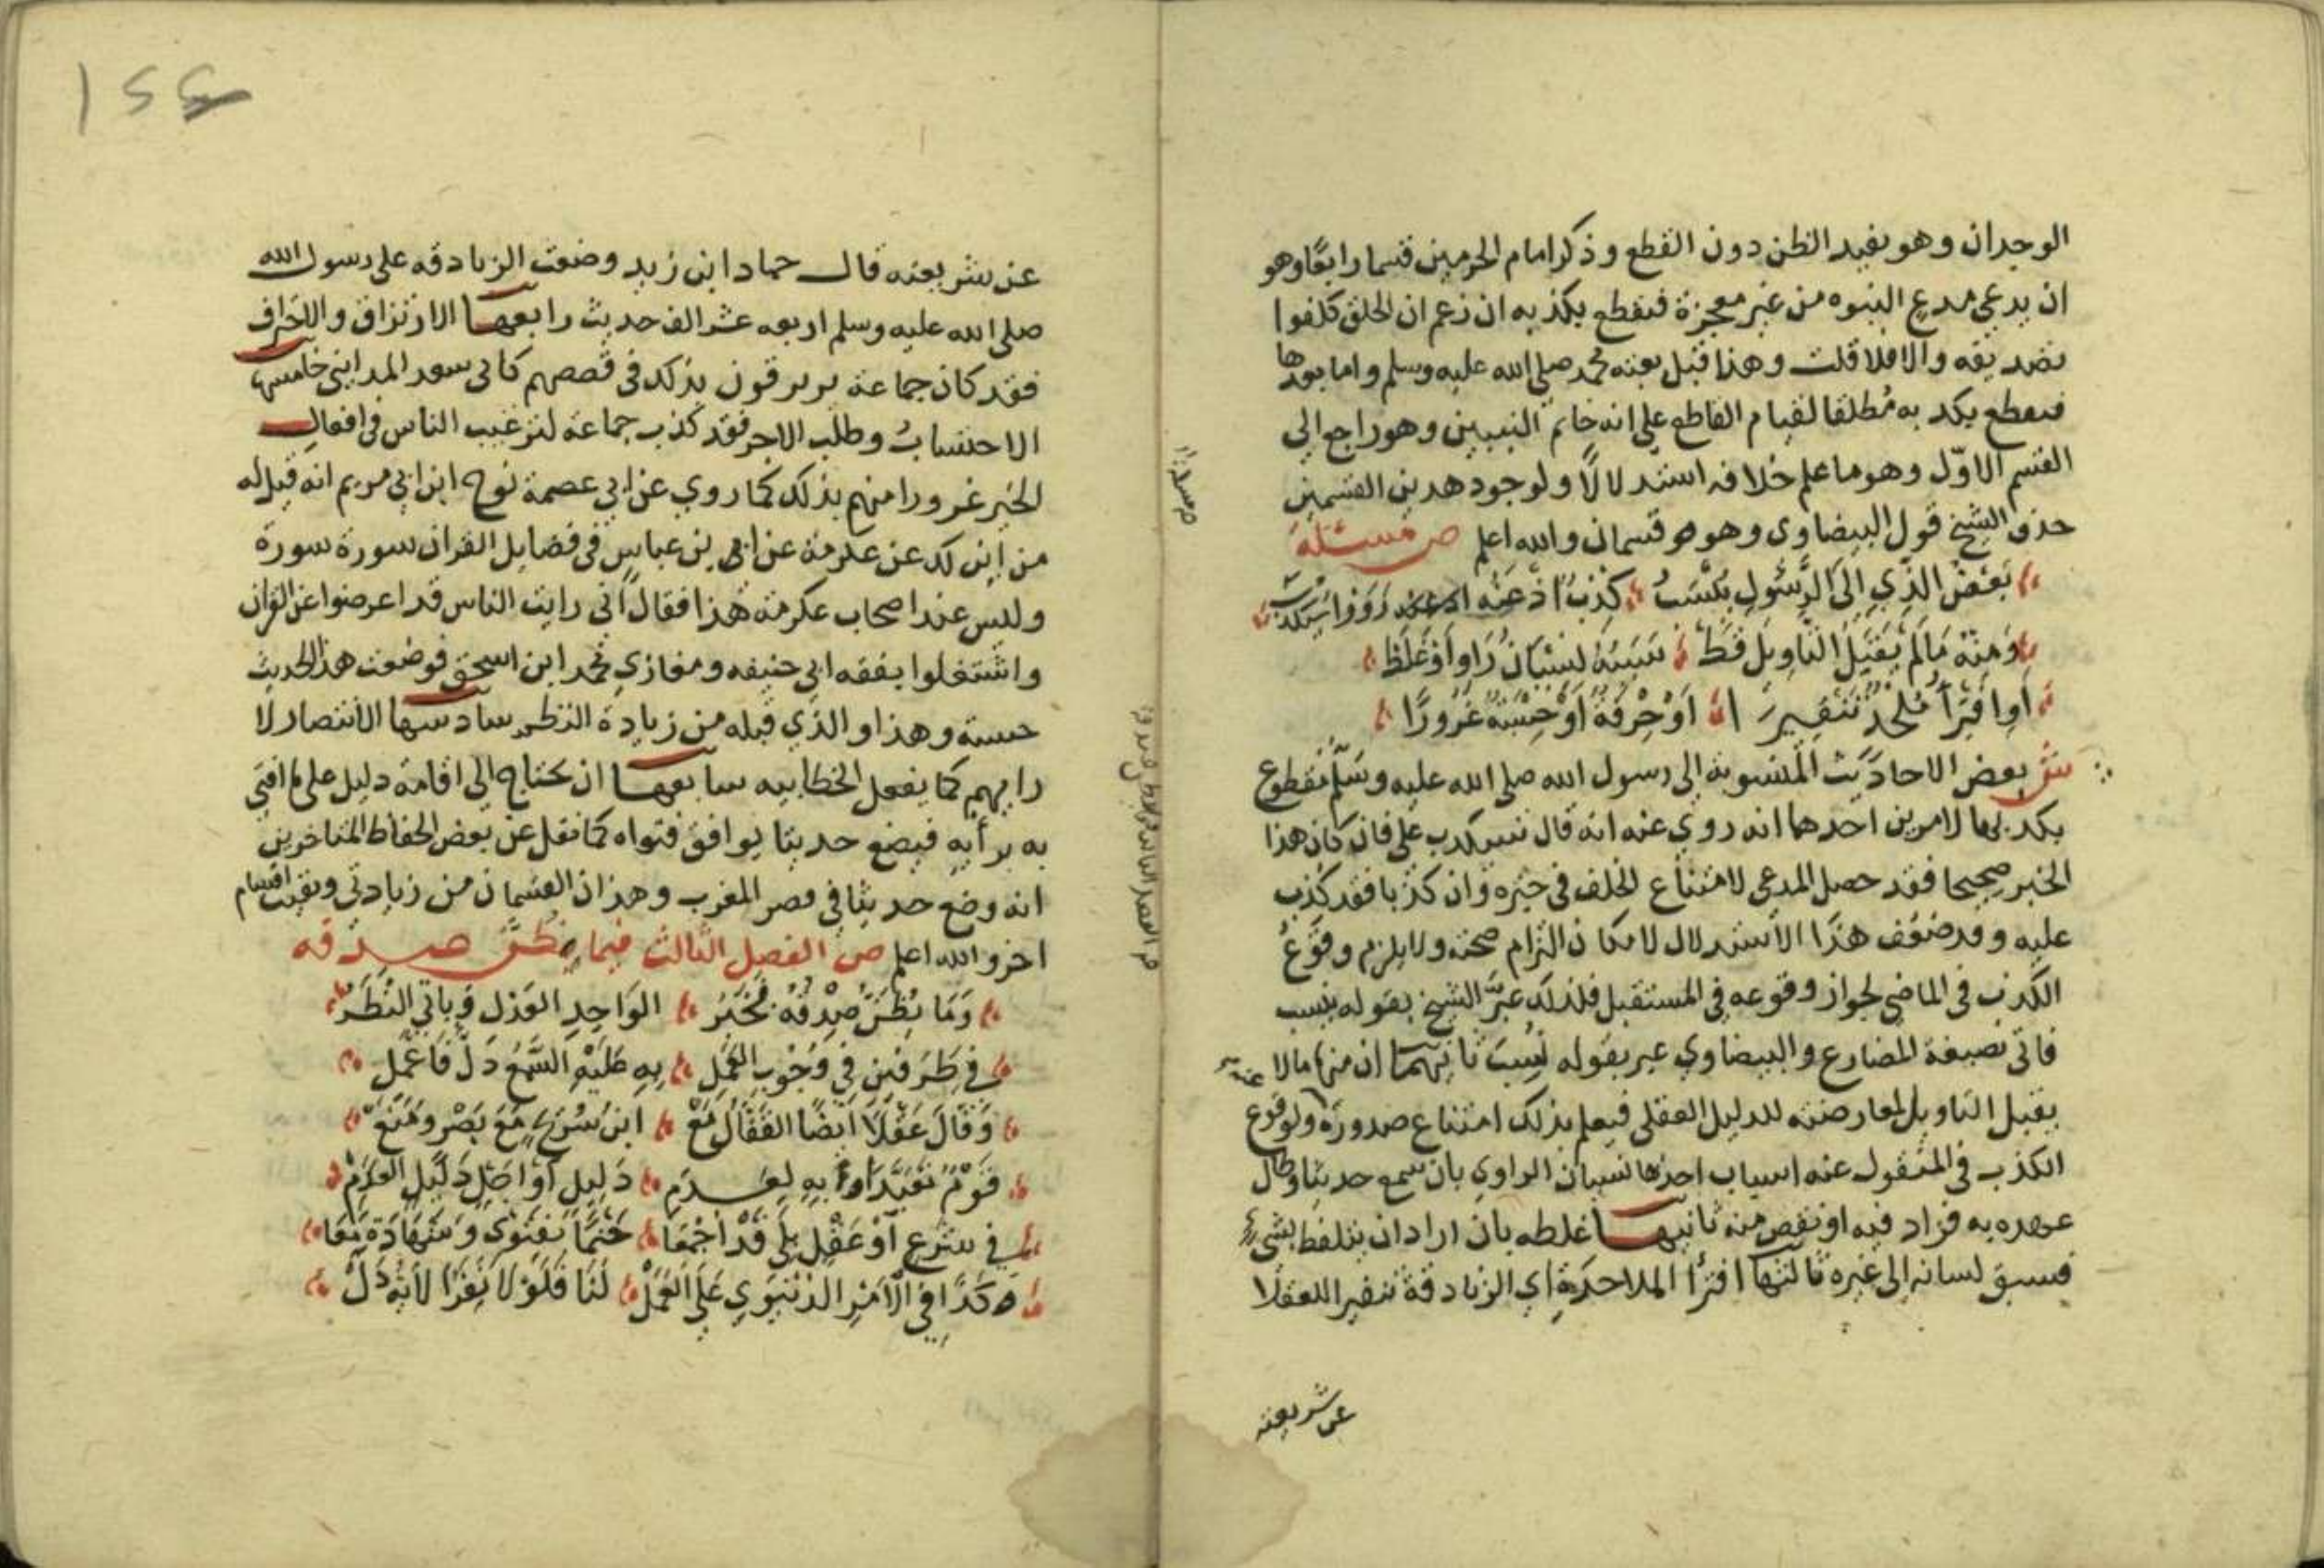 الوجدان وهو يفيد الظن دون القطع وذكر امام الحرمين قسما رابعًا وهو
ان يدعي مدع النبوه من غير معجزة فنقطع بكذبه ان زعم ان الخلق كلفوا
تصديقه والا فلا قلت وهذا قبل بعثه محمد صلى الله عليه وسلم واما بعدها
فنقطع بكذبه مُطلقا لقيام القاطع على انه خاتم النبيين وهو راجع الى
القسم الاوّل وهو ما علم خلافه استدلالًا ولوجود هدين القسمين
حذف الشيخ قول البيضاوى وهو قسمان والله اعلم ص مسئلة
بَعْضُ الذِي اِلَى الرَّسُولِ يُنْسَبُ كذبٌ اذ عَنْهُ رَوَوْا سَيُكْذَبُ
وَمِنْهُ مَا لَمْ يَقْبَلِ التَّاوِيلَ قَطْ سَبَبُهُ نِسْيَانُ رَاوٍ اَوْ غَلَطْ
اَوِ افْتِرَأُ مُلْحِدٍ تَنْفِيرَا اَوْ حِرْفَةٌ اَوْ حِسْبَةٌ غُرُورًا
ش بعض الاحاديث المنسوبة الى رسول الله صلى الله عليه وسلّم نقطع
بكدبها لامرين احدهما انه روي عنه انه قال سيكدب علي فان كان هذا
الخبر صحيحا فقد حصل المدعي لامتناع الخلف في خبره وان كذبا فقد كذب
عليه وقد ضعّف هذا الاستدلال لامكان التزام صحته ولا يلزم وقوعُ
الكذب في الماضي لجواز وقوعه في المستقبل فلذلك عبّر الشيخ بقوله ينسب
فاتى بصيغة المضارع والبيضاوي عبر بقوله نُسِبَ ثانيهما ان منها مالا
يقبل التاويل لمعارضته للدليل العقلي فيعلم بذلك امتناع صدوره ولوقوع
الكذب في المنقول عنه اسباب احدها نسيان الراوي بان سمع حديثا وطال
عهده به فزاد فيه او نقص منه ثانيهـا غلطه بان اراد ان يتلفظ بشيءٍ
فسبق لسانه الى غيره ثالثها افترأ الملاحدة اي الزنادقة تنفيرا للعقلا
عن شريعته
عن شريعته قال حماد ابن زيد وضعت الزنادقه على رسول الله
صلى الله عليه وسلم اربعه عشر الف حديث رابعهـا الارتزاق والاحتراف
فقد كان جماعة يرترقون بذلك في قصصهم كابي سعد المدايني خامسها
الاحتسابُ وطلب الاجر فقد كذب جماعة لترغيب الناس في افعال
الخير غرورا منهم بذلك كما روي عن ابي عصمة نوح ابن ابي مريم انه قيل له
من اين لك عن عكرمة عن ابن عباس في فضايل القران سورة سورة
وليس عند اصحاب عكرمة هذا فقال اني رايت الناس قد اعرضوا عن القران
واشتغلوا بفقه ابي حنيفه ومغازي محمد ابن اسحق فوضعت هذا الحديث
حسبة وهذا والذي قبله من زيادة النظم سادسها الانتصار لا
رايهم كما يفعل الخطابيه سابعهـا ان يحتاج الى اقامة دليل على ما افتى
به برأيه فيضع حديثا يوافق فتواه كما نقل عن بعض الحفاظ المتاخرين
انه وضع حديثا في قصر المغرب وهذان القسمان من زيادتي وبقيت اقسام
اخر والله اعلم ص الفصل الثالث فيما يُظَنّ صدقه
وَمَا يُظَنُّ صِدْقُهُ مُخْتَبَرُ الوَاحِدِ العَدْلِ وَيَاتِي النَّظَرُ
في طَرَفَيْنِ فِي وُجُوبِ العَمَلِ بِهِ عَلَيْهِ السَّمْعُ دَلَّ فَاعْمَلِ
وَقَالَ عَقْلًا اَيْضًا القَفَّالُ مَعْ ابنِ سُرَيْجٍ مَعَ بَصْرٍ وَمَنَعْ
قَوْمٌ تَعَبُّدًا بِهِ لِعَدَمِ دَلِيلٍ اَوْ اجَلِ دَلِيلِ العَدَمْ
في شَرْعٍ اَوْ عَقْلٍ بَلَى قَدْ اَجْمَعَا حَتْمًا بِفَتْوَى وَشَهَادَةٍ مَعَا
وَكَذَا فِي الاَمْرِ الدُّنْيَوِي عَلَى العَمَلْ لَنَا فَلَوْلَا نَفَرَا لاَيُهْ دَلّ